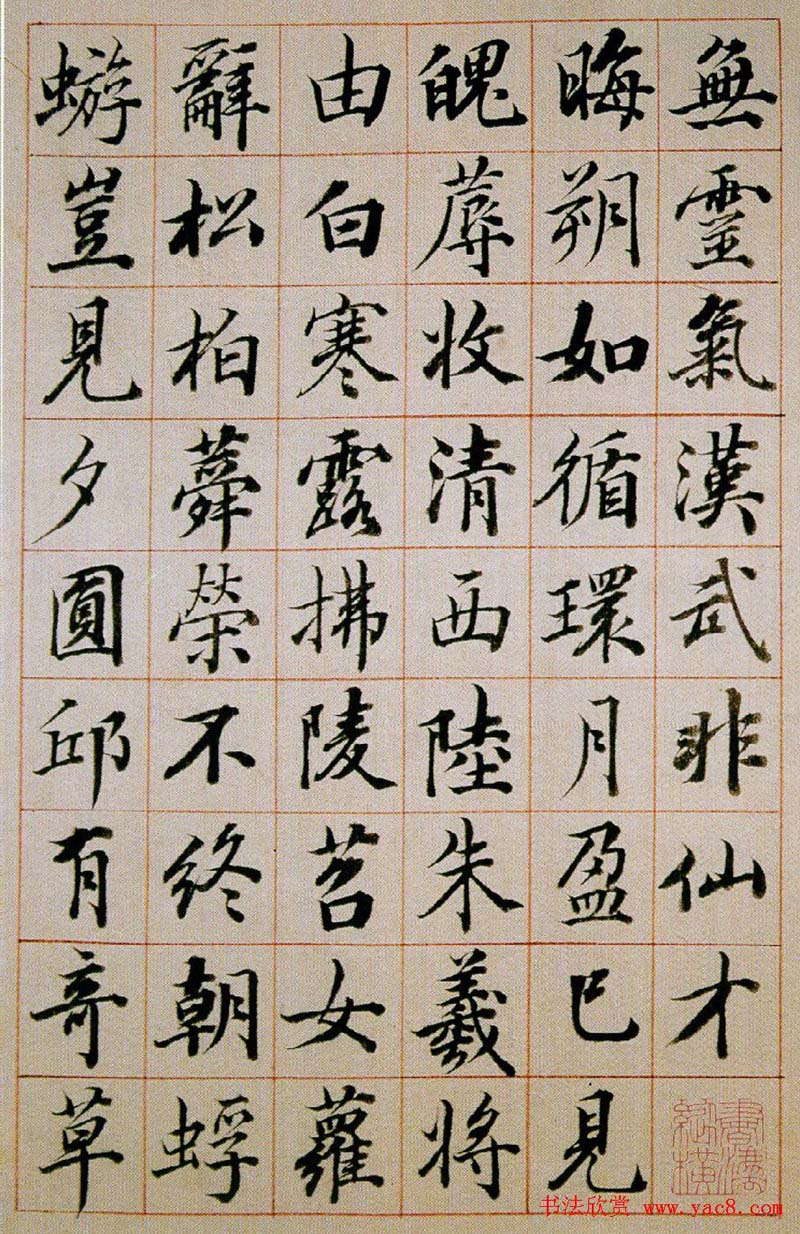 無靈氣漢武非仙才
晦朔如循環月盈已見
魄蓐收清西陸朱羲將
由白寒露拂陵苕女蘿
辭松柏蕣榮不終朝蜉
蝣豈見夕圓邱有竒草
书法欣赏 www.yac8.com